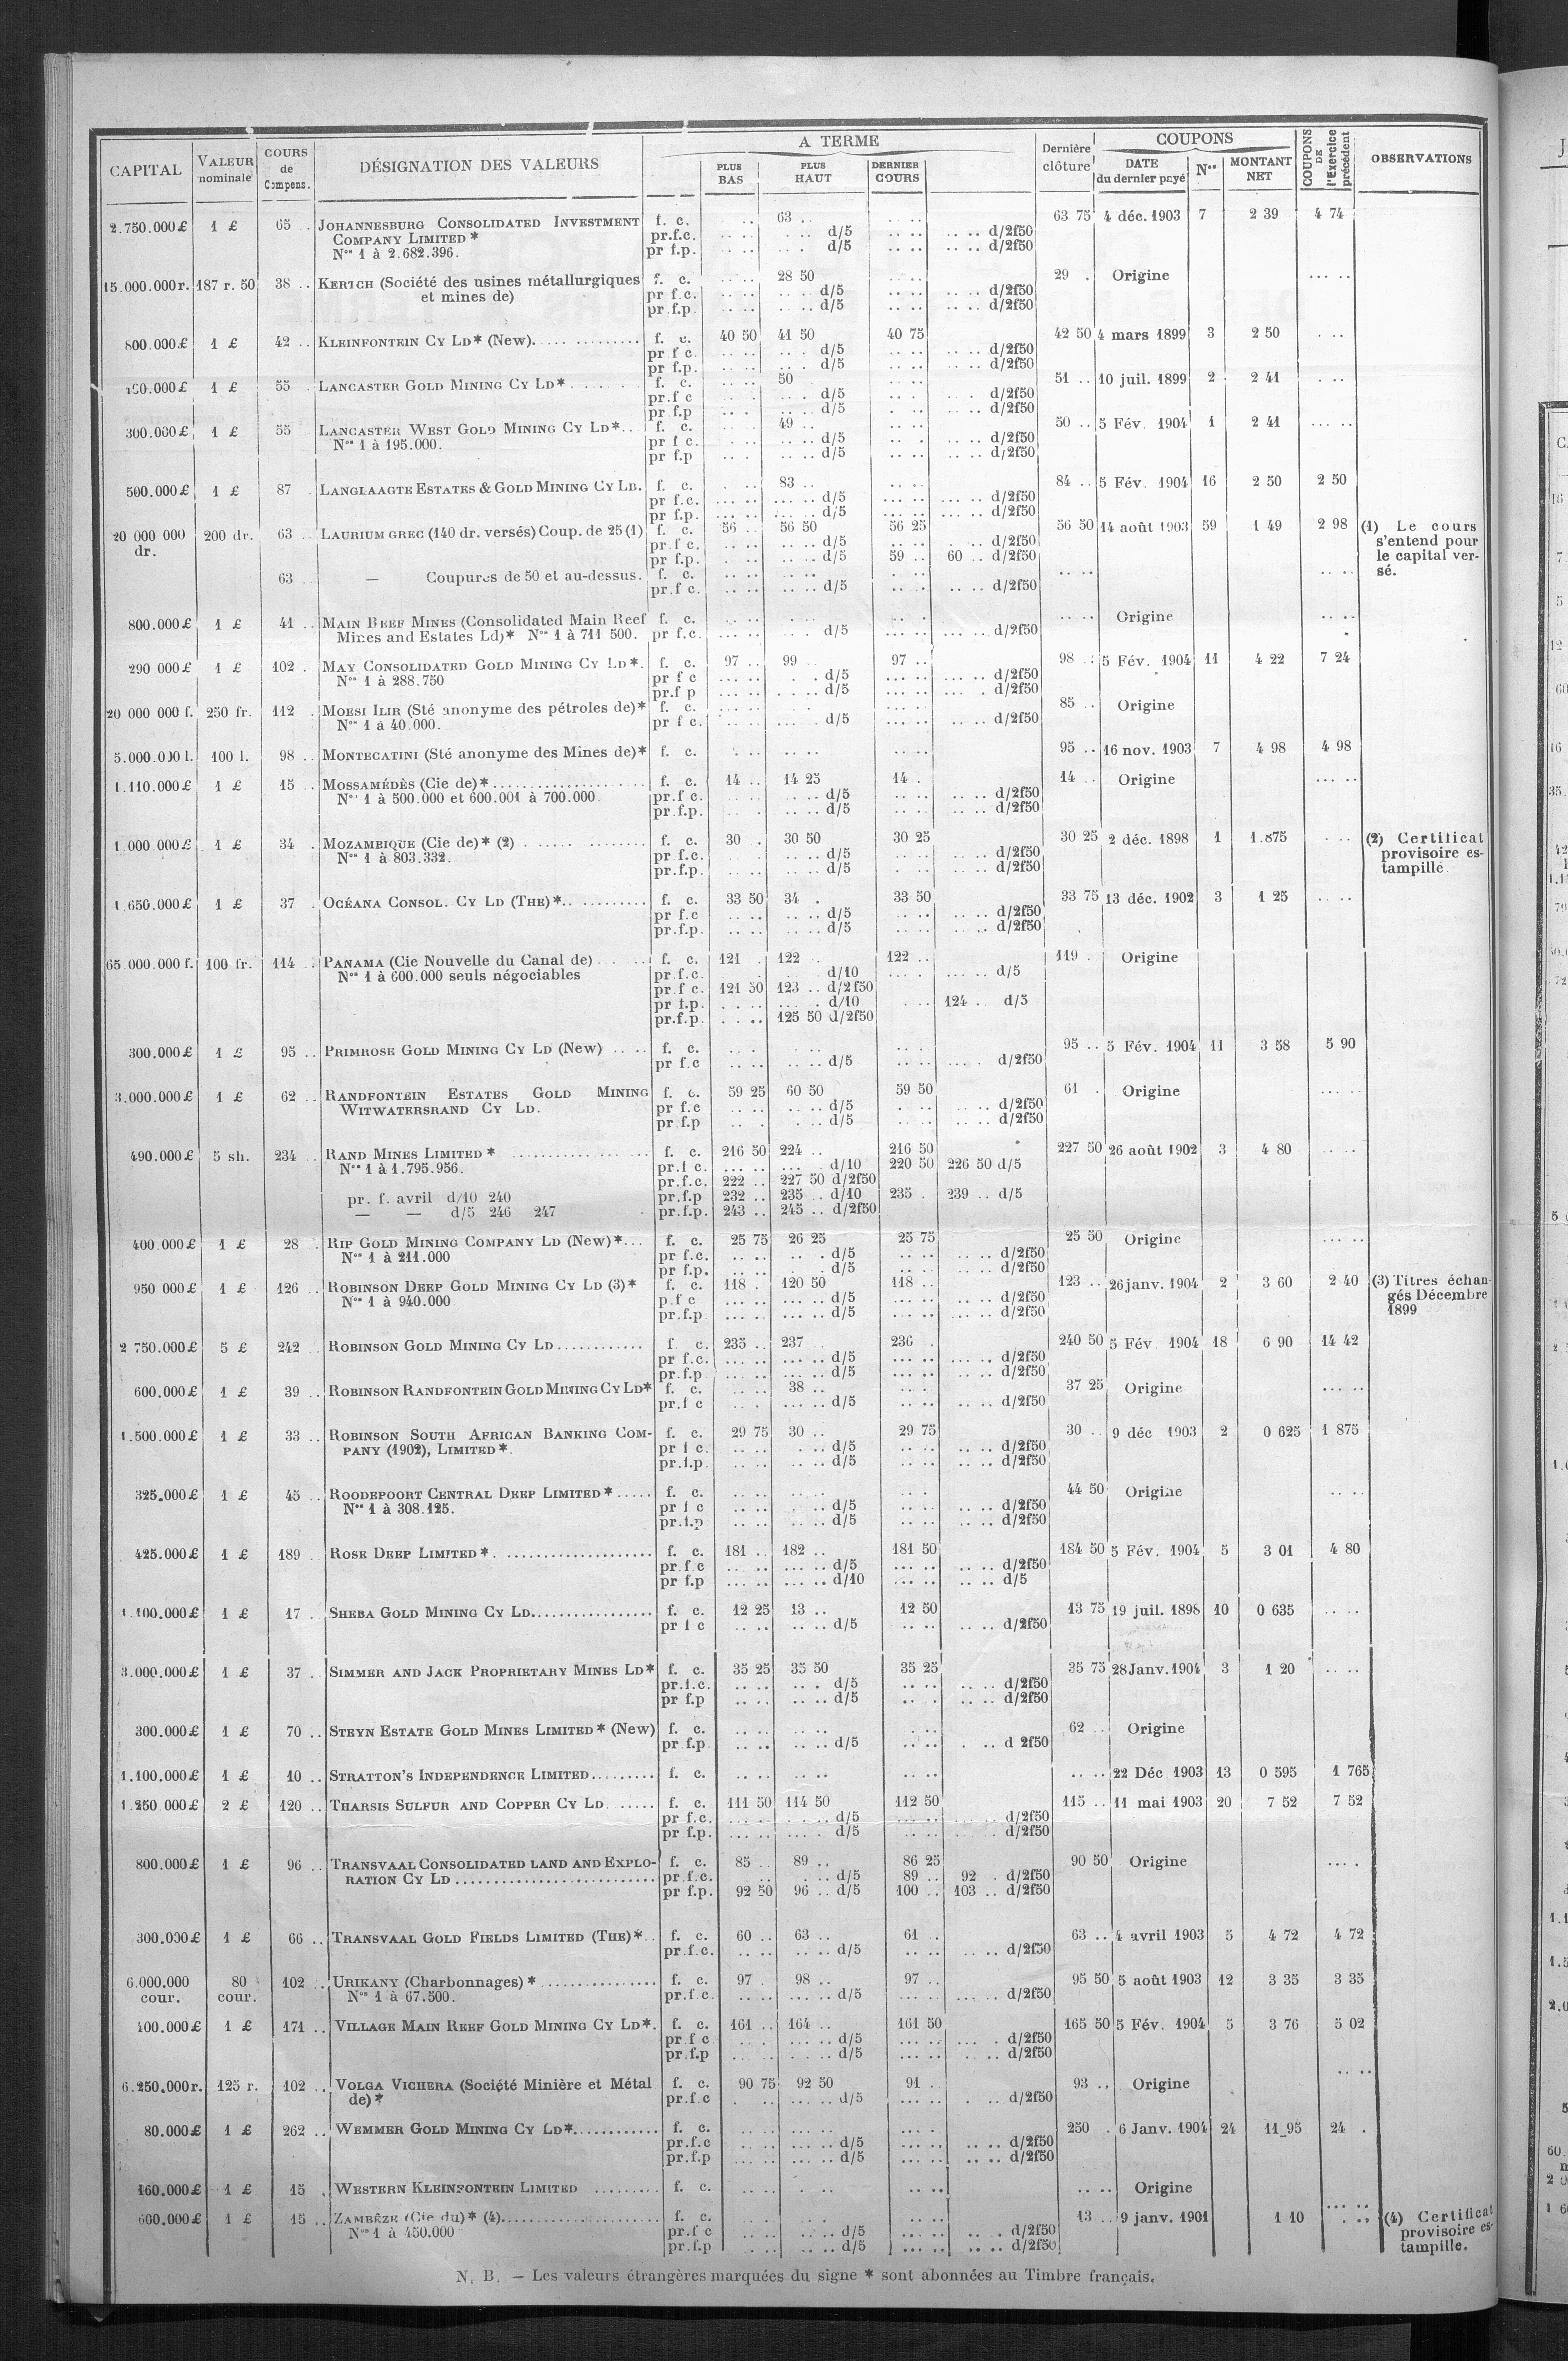 CAPITAL VALEUR nominale COURS de Compens. DÉSIGNATION DES VALEURS A TERME PLUS BAS PLUS HAUT DERNIER COURS Dernière clôture COUPONS DATE du dernier payé Nos MONTANT NET COUPONS DE l'Exercice précédent OBSERVATIONS
2.750.000£ 1 £ 65 .. JOHANNESBURG CONSOLIDATED INVESTMENT f. c. .. 63 .. .. .. 63 75 4 déc. 1903 7 2 39 4 74
COMPANY LIMITED * pr.f.c. .. .. .. .. d/5 .. .. .. .. d/2f50
Nos 1 à 2.682.396. pr f.p. .. .. . .. d/5 .. .. .. .. d/2f50
15.000.000r. 187 r. 50 38 .. KERTCH (Société des usines métallurgiques f. c. 28 50 29 . Origine ... ..
et mines de) pr f.c. .. .. .. .. d/5 .. .. .. .. d/2f50
pr.f.p. .. .. .. .. d/5 .. .. .. .. d/2f50
800.000£ 1 £ 42 .. KLEINFONTEIN CY LD* (New). f. c. 40 50 41 50 40 75 42 50 4 mars 1899 3 2 50 . ..
pr f c. .. .. .. . d/5 .. .. .. .. d/2f50
pr f.p. .. .. .. . d/5 .. .. .. .. d/2f50
1 £ 55 .. LANCASTER GOLD MINING CY LD* f. c. 50 51 .. 10 juil. 1899 2 2 41 . ..
pr.f c .. .. .. . d/5 .. .. . . d/2f50
pr.f.p .. . .. .. d/5 . .. .. .. d/2f50
300.000£ 1 £ 55 LANCASTER WEST GOLD MINING CY LD*.. f. c. 49 .. 50 .. 5 Fév. 1904 1 2 41 ... ..
Nos 1 à 195.000. pr f c. .. .. d/5 .. . .. .. d/2f50
pr f.p .. . .. .. d/5 .. .. .. .. d/2f50
500.000£ 1 £ 87 . LANGLAAGTE ESTATES & GOLD MINING CY LD. f. c. 83 .. 84 .. 5 Fév. 1904 16 2 50 2 50
pr f.c. ... .. ... .. d/5 ... .. ... .. d/2f50
pr f.p. ... .. ... .. d/5 ... .. ... .. d/2f50
20 000 000 dr. 200 dr. 63 .. LAURIUM GREC (140 dr. versés) Coup. de 25 (1) f. c. 56 .. 56 50 56 25 56 50 14 août 1903 59 1 49 2 98 (1) Le cours
pr.f c. .. .. .. .. d/5 .. .. .. d/2f50 s'entend pour
pr f.p. . .. .. .. d/5 59 .. 60 .. d/2f50 le capital ver-
63 .. — Coupures de 50 et au-dessus. f. c. .. .. .. .. . .. .. .. .. .. sé.
pr.f c. .. .. .. .. d/5 .. .. .. .. d/2f50
800.000£ 1 £ 41 .. MAIN REEF MINES (Consolidated Main Reef f. c. .. .. .. .. Origine .. ..
Mines and Estates Ld)* Nos 1 à 711 500. pr f.c. ... .. d/5 ... .. ... .. d/2f50
290 000£ 1 £ 102 . MAY CONSOLIDATED GOLD MINING CY LD*. f. c. 97 .. 99 .. 97 .. 98 .. 5 Fév. 1904 11 4 22 7 24
Nos 1 à 288.750 pr f c ... .. . . d/5 ... .. ... .. d/2f50
pr.f p ... .. .. .. d/5 ... .. ... . d/2f50
20 000 000 f. 250 fr. 112 . MOESI ILIR (Sté anonyme des pétroles de)* f. c. .. .. . .. .. 85 .. Origine
Nos 1 à 40.000. pr f c. .. .. ... .. d/5 ... .. .. .. d/2f50
5.000.000 l. 100 l. 98 .. MONTECATINI (Sté anonyme des Mines de)* f. c. . .. .. .. .. .. 95 .. 16 nov. 1903 7 4 98 4 98
1.110.000£ 1 £ 15 .. MOSSAMÉDÈS (Cie de)*.................... f. c. 14 .. 14 25 14 . 14 .. Origine ... ..
Nos 1 à 500.000 et 600.001 à 700.000. pr.f c. .. . .. .. d/5 .. .. .. .. d/2f50
pr.f.p. .. . .. .. d/5 .. .. .. .. d/2f50
1 000.000£ 1 £ 34 . MOZAMBIQUE (Cie de)* (2) . .............. f. c. 30 . 30 50 30 25 30 25 2 déc. 1898 1 1.875 . .. (2) Certificat
Nos 1 à 803.332. pr f.c. .. .. .. .. d/5 .. .. .. .. d/2f50 provisoire es-
pr.f.p. .. .. .. .. d/5 . .. .. .. d/2f50 tampillé.
1.650.000£ 1 £ 37 . OCÉANA CONSOL. CY LD (THE)*.. ......... f. c. 33 50 34 . 33 50 33 75 13 déc. 1902 3 1 25 .. ..
pr f.c .. .. .. .. d/5 .. .. .. .. d/2f50
pr.f.p. .. .. .. .. d/5 .. .. .. .. d/2f50
65.000.000 f. 100 fr. 114 .. PANAMA (Cie Nouvelle du Canal de) f. c. 121 . 122 .. 122 .. 119 . Origine
Nos 1 à 600.000 seuls négociables pr.f.c. . . d/10 ... . ... .. d/5
pr.f c. 121 50 123 .. d/2 f50
pr f.p. . . . . . d/10 . .. 124 . d/5
pr.f.p. . . .. 125 50 d/2f50
300.000£ 1 £ 95 .. PRIMROSE GOLD MINING CY LD (New) .. .. f. c. .. . . .. .. . 95 .. 5 Fév. 1904 11 3 58 5 90
pr f.c .. .. .. .. d/5 .. .. ... . d/2f50
3.000.000£ 1 £ 62 .. RANDFONTEIN ESTATES GOLD MINING f. c. 59 25 60 50 59 50 61 . Origine ... ..
WITWATERSRAND CY LD. pr f.c .. .. .. .. d/5 . .. .. .. d/2f50
pr f.p .. . . .. d/5 .. .. .. .. d/2f50
490.000£ 5 sh. 234 .. RAND MINES LIMITED * ................ f. c. 216 50 224 .. 216 50 227 50 26 août 1902 3 4 80 .. ..
Nos 1 à 1.795.956. pr.f c. ... .. ... . d/10 220 50 226 50 d/5
pr.f.c. 222 .. 227 50 d/2f50
pr. f. avril d/10 240 pr.f.p 232 .. 235 .. d/10 235 . 239 .. d/5
— — d/5 246 247 pr.f.p. 243 .. 245 .. d/2f50
400.000£ 1 £ 28 . RIP GOLD MINING COMPANY LD (New)*... f. c. 25 75 26 25 25 75 25 50 Origine ... ..
Nos 1 à 211.000 pr f.c. .. .. .. . d/5 .. .. .. .. d/2f50
pr f.p. .. .. . d/5 .. .. .. .. d/2f50
950 000£ 1 £ 126 .. ROBINSON DEEP GOLD MINING CY LD (3)* f. c. 118 . 120 50 118 .. 123 .. 26 janv. 1904 2 3 60 2 40 (3) Titres échan-
Nos 1 à 940.000 p.f c ... .. ... .. d/5 ... .. ... .. d/2f50 gés Décembre
pr.f.p ... .. ... .. d/5 ... .. ... .. d/2f50 1899
2 750.000£ 5 £ 242 .. ROBINSON GOLD MINING CY LD ............ f c. 235 .. 237 236 . 240 50 5 Fév. 1904 18 6 90 14 42
pr f.c. ... .. ... .. d/5 ... .. ... .. d/2f50
pr.f.p ... .. ... .. d/5 ... .. ... .. d/2f50
600.000£ 1 £ 39 .. ROBINSON RANDFONTEIN GOLD MINING CY LD* f. c. .. .. 38 .. .. . 37 25 Origine ... ..
pr.f c .. . ... .. d/5 .. .. .. .. d/2f50
1.500.000£ 1 £ 33 .. ROBINSON SOUTH AFRICAN BANKING COM- f. c. 29 75 30 .. 29 75 30 .. 9 déc 1903 2 0 625 1 875
PANY (1902), LIMITED *. pr f c. .. .. . .. d/5 .. .. .. .. d/2f50
pr.f.p. .. .. .. .. d/5 .. .. .. .. d/2f50
325.000£ 1 £ 45 .. ROODEPOORT CENTRAL DEEP LIMITED *..... f. c. .. .. .. .. .. . 44 50 Origine .. ..
Nos 1 à 308.125. pr f c .. .. .. .. d/5 .. .. .. .. d/2f50
pr.f.p .. .. .. .. d/5 .. .. .. .. d/2f50
425.000£ 1 £ 189 . ROSE DEEP LIMITED *. .................... f. c. 181 .. 182 .. 181 50 184 50 5 Fév. 1904 5 3 01 4 80
pr.f c ... .. ... .. d/5 ... .. ... .. d/2f50
pr f.p ... .. ... .. d/10 ... .. .. .. d/5
1.100.000£ 1 £ 17 . SHEBA GOLD MINING CY LD................. f. c. 12 25 13 .. 12 50 13 75 19 juil. 1898 10 0 635 .. ..
pr f c .. .. .. .. d/5 .. .. .. .. d/2f50
3.000.000£ 1 £ 37 .. SIMMER AND JACK PROPRIETARY MINES LD* f. c. 35 25 35 50 35 25 35 75 28 Janv. 1904 3 1 20 .. ..
pr.f.c. .. .. .. . d/5 .. .. .. .. d/2f50
pr f.p .. .. .. .. d/5 .. . .. .. d/2f50
300.000£ 1 £ 70 .. STEYN ESTATE GOLD MINES LIMITED * (New) f. c. .. .. .. .. . .. 62 .. Origine
pr.f.p. .. .. .. .. d/5 .. .. . .. d 2f50
1.100.000£ 1 £ 10 .. STRATTON'S INDEPENDENCE LIMITED......... f. c. .. .. .. .. .. .. .. .. 22 Déc 1903 13 0 595 1 765
1.250 000£ 2 £ 120 .. THARSIS SULFUR AND COPPER CY LD. ..... f. c. 111 50 114 50 112 50 115 .. 11 mai 1903 20 7 52 7 52
pr f.c. ... . . .. d/5 ... .. d/2f50
pr f.p. ... .. ... . d/5 .. .. . d/2f50
800.000£ 1 £ 96 .. TRANSVAAL CONSOLIDATED LAND AND EXPLO- f. c. 85 .. 89 .. 86 25 90 50 Origine ... .
RATION CY LD ........................... pr f.c. .. . .. d/5 89 .. 92 . d/2f50
pr f.p. 92 50 96 .. d/5 100 .. 103 .. d/2f50
300.000£ 1 £ 66 .. TRANSVAAL GOLD FIELDS LIMITED (THE)*.. f. c. 60 .. 63 .. 61 . 63 .. 4 avril 1903 5 4 72 4 72
pr.f.c. .. .. .. .. d/5 .. .. .. .. d/2f50
6.000.000 80 102 .. URIKANY (Charbonnages) * ............... f. c. 97 . 98 .. 97 .. 95 50 5 août 1903 12 3 35 3 35
cour. cour. Nos 1 à 67.500. pr.f.c. .. .. ... .. d/5 ... .. ... .. d/2f50
400.000£ 1 £ 171 .. VILLAGE MAIN REEF GOLD MINING CY LD*. f. c. 161 .. 164 .. 161 50 165 50 5 Fév. 1904 5 3 76 5 02
pr.f c .. . ... .. d/5 ... .. ... . d/2f50
pr.f.p .. . .. .. d/5 ... .. . .. d/2f50
6.250.000r. 125 r. 102 .. VOLGA VICHERA (Société Minière et Métal f. c. 90 75 92 50 91 .. 93 .. Origine .. ..
de) * pr.f.c . .. ... .. d/5 ... .. . .. d/2f50
80.000£ 1 £ 262 .. WEMMER GOLD MINING CY LD*............ f. c. .. .. ... .. ... . 250 . 6 Janv. 1904 24 11 95 24 .
pr.f.c .. .. ... .. d/5 ... .. .. .. d/2f50
pr.f.p ... .. ... .. d/5 ... .. .. .. d/2f50
160.000£ 1 £ 15 . WESTERN KLEINFONTEIN LIMITED ......... f. c. .. . . .. .. .. .. .. Origine
600.000£ 1 £ 15 .. ZAMBÈZE (Cie du)* (4)..................... f. c. .. . . .. .. .. 13 .. 9 janv. 1901 1 10 . .. (4) Certificat
Nos 1 à 450.000 pr.f c .. .. .. .. d/5 ... .. .. . d/2f50 provisoire es-
pr.f.p .. .. .. .. d/5 ... .. .. .. d/2f50 tampillé.
N. B. — Les valeurs étrangères marquées du signe * sont abonnées au Timbre français.